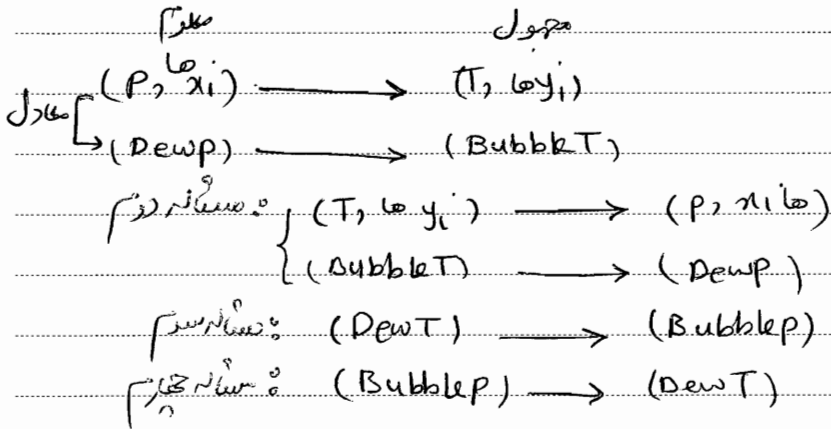 معلوم مجهول
(P, xᵢ ها) → (T, yᵢ ها)
معادل (DewP) → (BubbleT)
مسأله دوم: (T, yᵢ ها) → (P, xᵢ ها)
(BubbleT) → (DewP)
مسأله سوم: (DewT) → (BubbleP)
مسأله چهارم: (BubbleP) → (DewT)